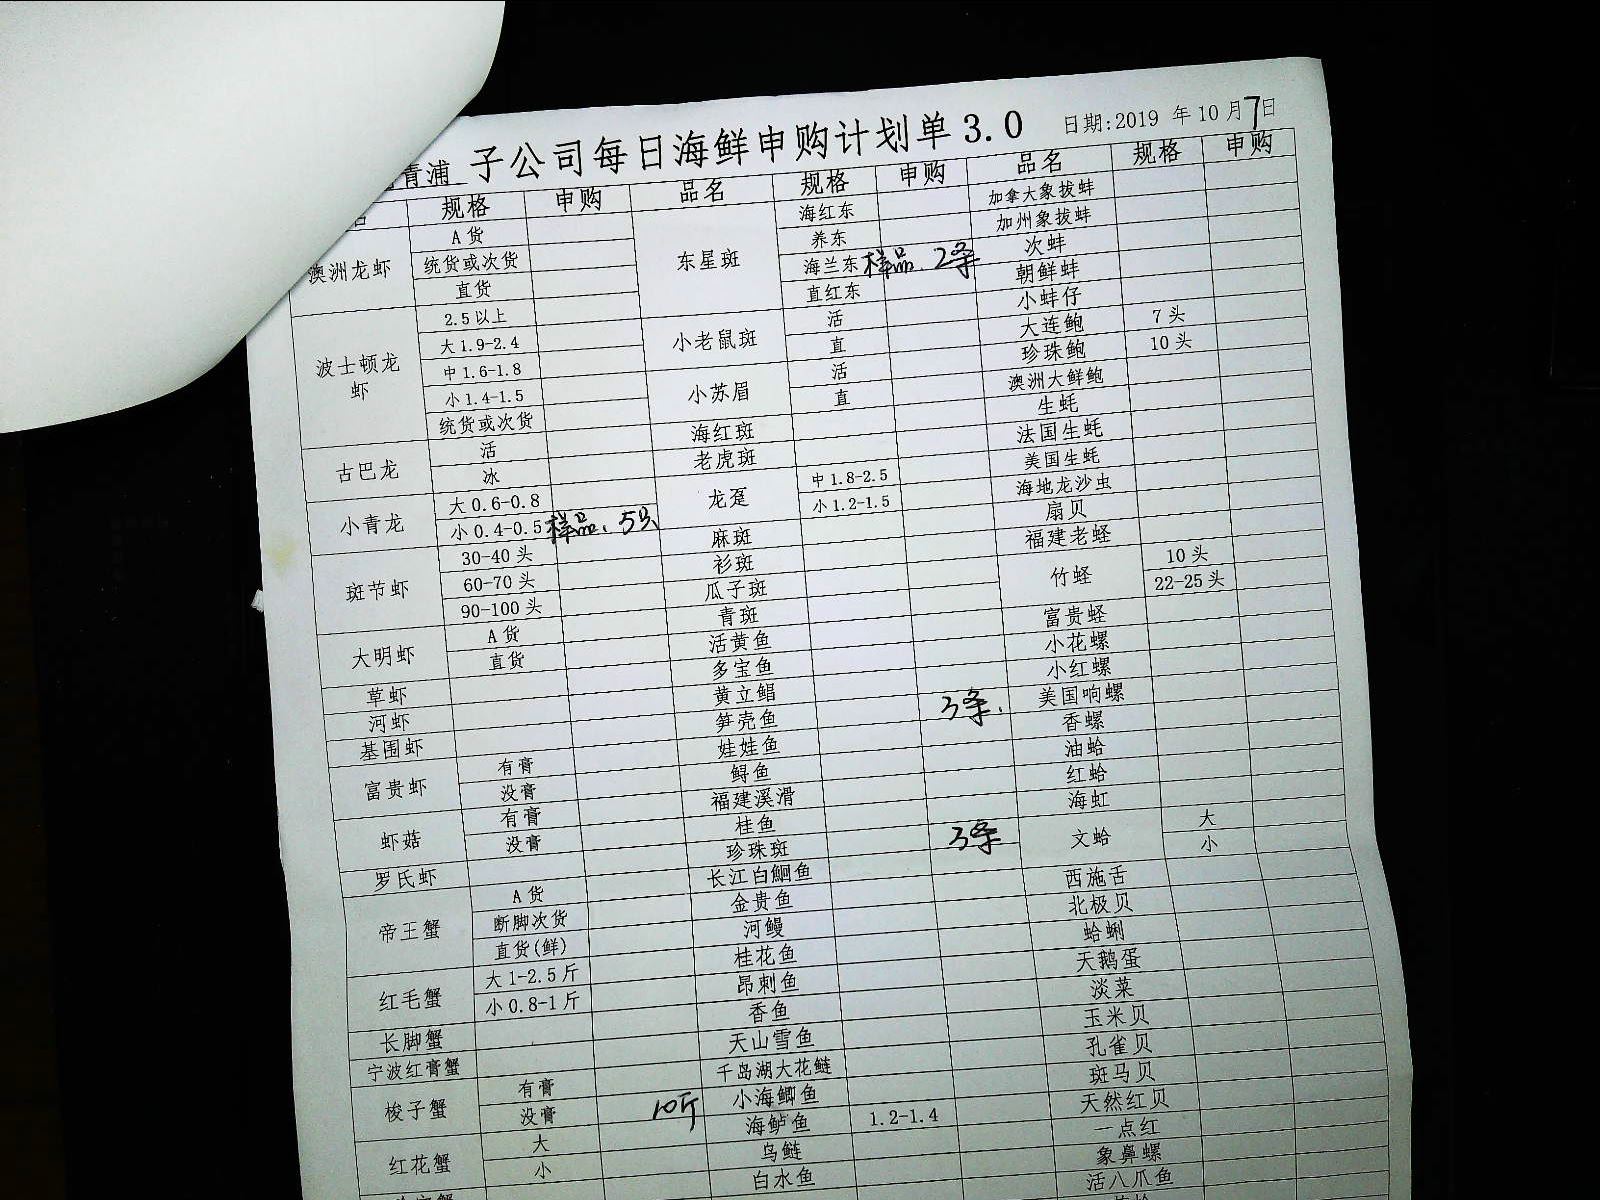 青浦 子公司每日海鲜申购计划单3.0 日期:2019 年 10 月7日
规格 申购 品名 规格 申购 品名 规格 申购
澳洲龙虾 A 货 东星斑 海红东 加拿大象拔蚌
统货或次货 养东 加州象拔蚌
直货 海兰东 样品.2条 次蚌
直红东 朝鲜蚌
波士顿龙虾 2.5 以上 小老鼠斑 活 小蚌仔
大 1.9-2.4 直 大连鲍 7 头
中 1.6-1.8 小苏眉 活 珍珠鲍 10 头
小 1.4-1.5 直 澳洲大鲜鲍
统货或次货 海红斑 生蚝
古巴龙 活 老虎斑 法国生蚝
冰 龙趸 中 1.8-2.5 美国生蚝
小青龙 大 0.6-0.8 小 1.2-1.5 海地龙沙虫
小 0.4-0.5 样品.5只 麻斑 扇贝
斑节虾 30-40 头 衫斑 福建老蛏
60-70 头 瓜子斑 竹蛏 10 头
90-100 头 青斑 22-25 头
大明虾 A 货 活黄鱼 富贵蛏
直货 多宝鱼 小花螺
草虾 黄立鲳 小红螺
河虾 笋壳鱼 3条. 美国响螺
基围虾 娃娃鱼 香螺
富贵虾 有膏 鲟鱼 油蛤
没膏 福建溪滑 红蛤
虾菇 有膏 桂鱼 海虹
没膏 珍珠斑 3条 文蛤 大
罗氏虾 长江白鮰鱼 小
帝王蟹 A 货 金贵鱼 西施舌
断脚次货 河鳗 北极贝
直货(鲜) 桂花鱼 蛤蜊
红毛蟹 大 1-2.5 斤 昂刺鱼 天鹅蛋
小 0.8-1 斤 香鱼 淡菜
长脚蟹 天山雪鱼 玉米贝
宁波红膏蟹 千岛湖大花鲢 孔雀贝
梭子蟹 有膏 小海鲫鱼 斑马贝
没膏 10斤 海鲈鱼 1.2-1.4 天然红贝
红花蟹 大 乌鲢 一点红
小 白水鱼 象鼻螺
活八爪鱼